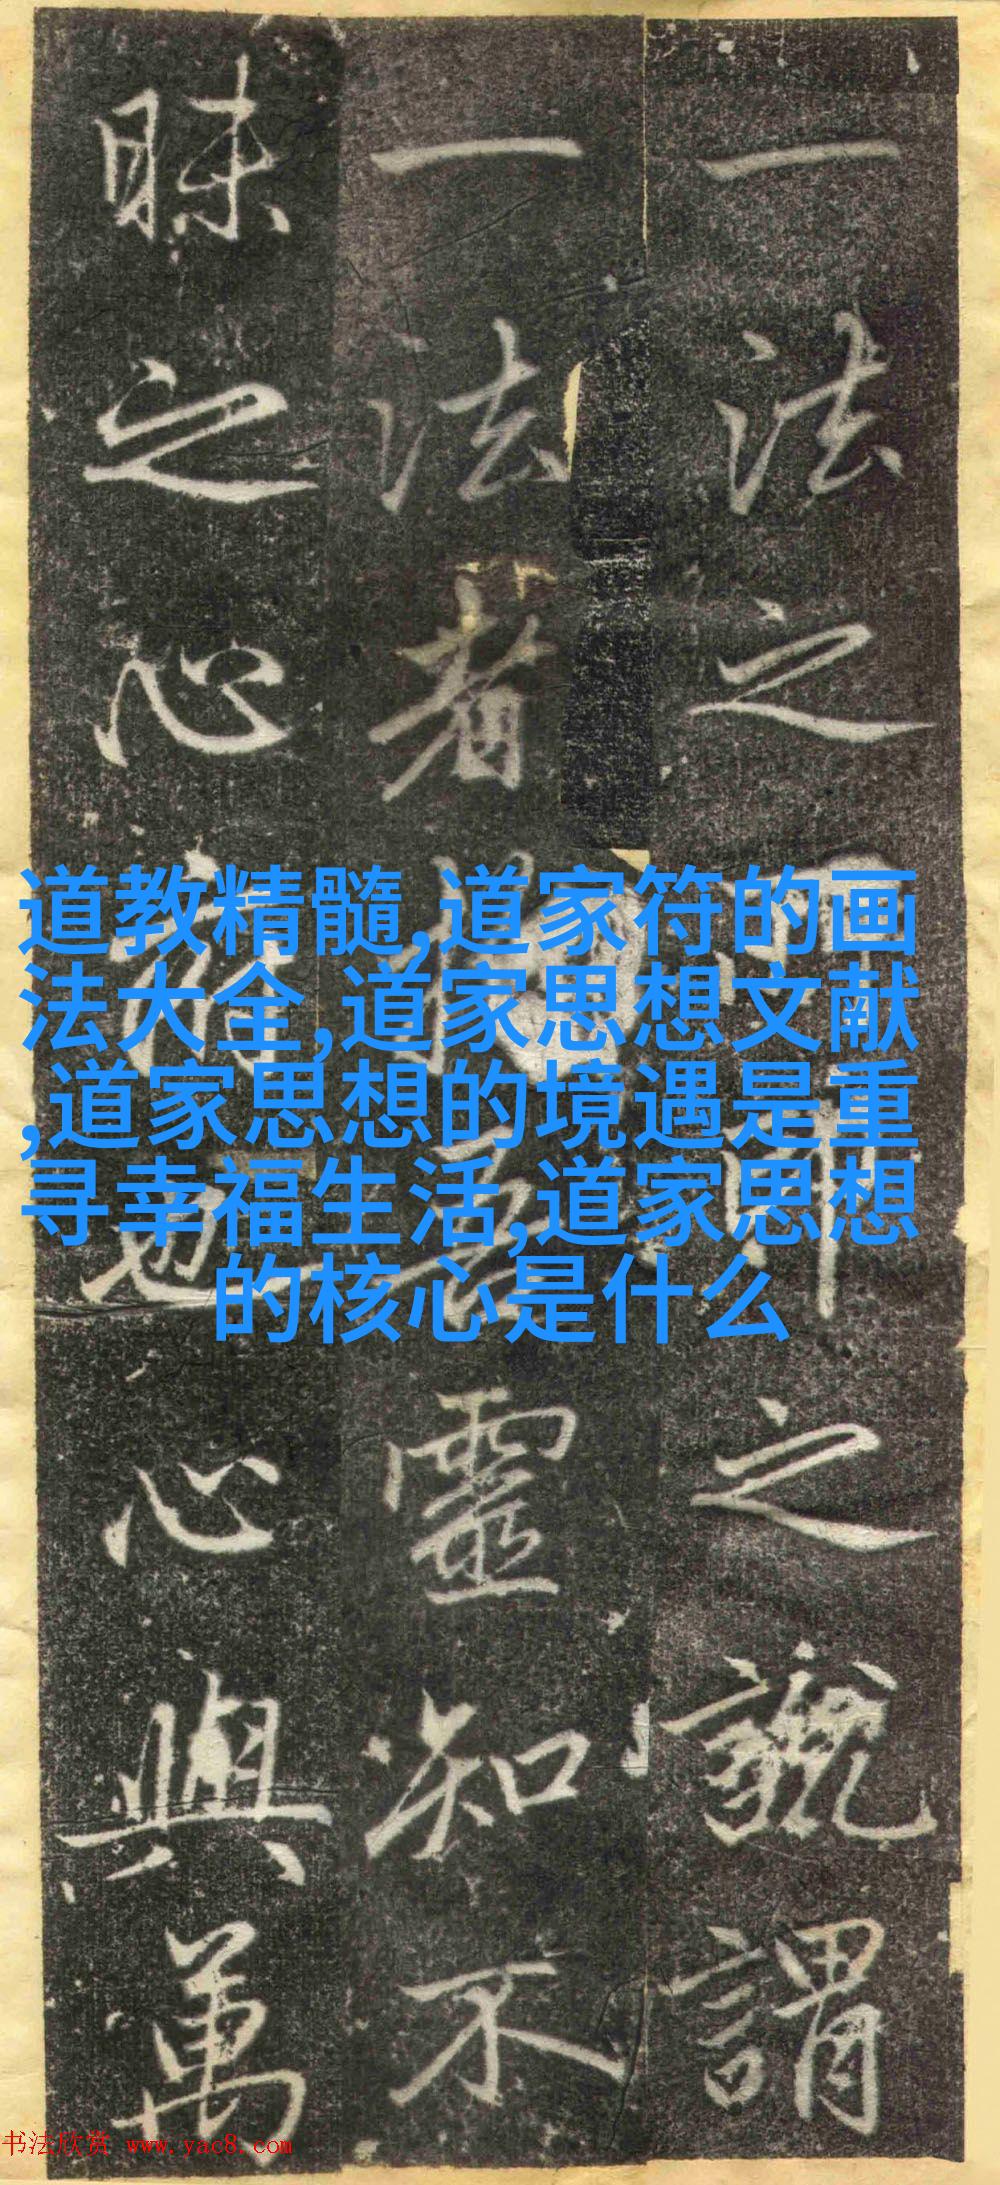 一法之之謂
一法者靈知不
昧之心也心與萬
道教精髓,道家符的画
法大全,道家思想文献
,道家思想的境遇是重
寻幸福生活,道家思想
的核心是什么
书法欣赏 www.yac8.com